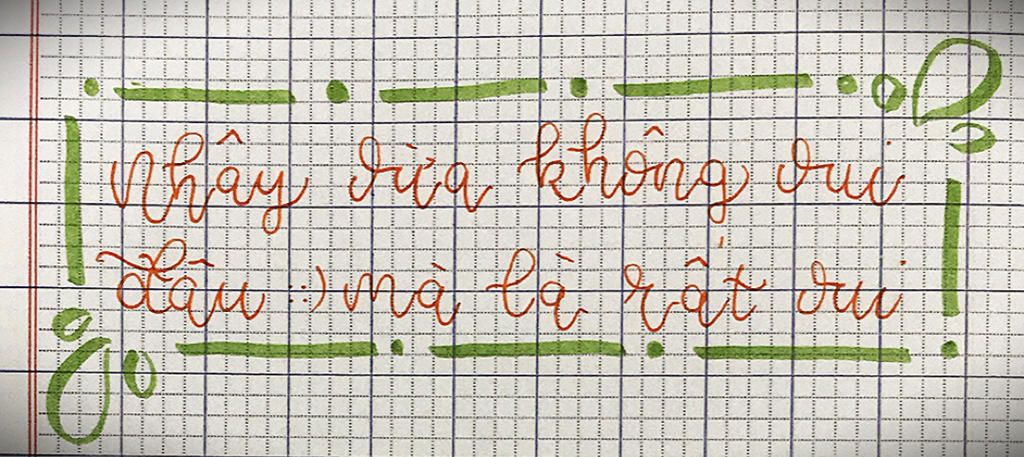 Nhây vừa không vui
đâu ::) mà là rất vui